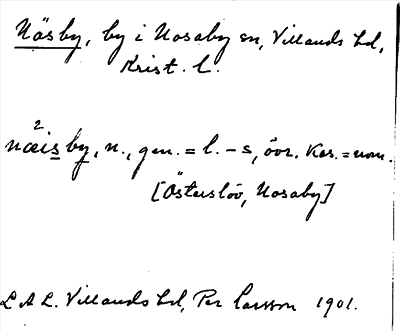 Näsby, by i Nosaby sn, Villands hd,
Krist. l.
2
næisby, n., gen. = l. -s, övr. kas. = nom.
[Österslöv, Nosaby]
L A L. Villands hd, Per Larsson 1901.